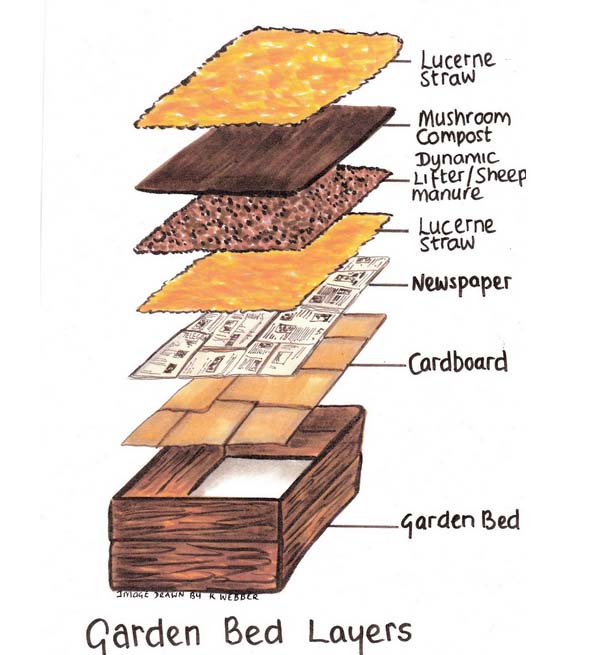 Lucerne
Straw
Mushroom
Compost
Dynamic
Lifter/Sheep
manure
Lucerne
Straw
Newspaper
Cardboard
Garden Bed
IMAGE DRAWN BY K WEBBER
Garden Bed Layers